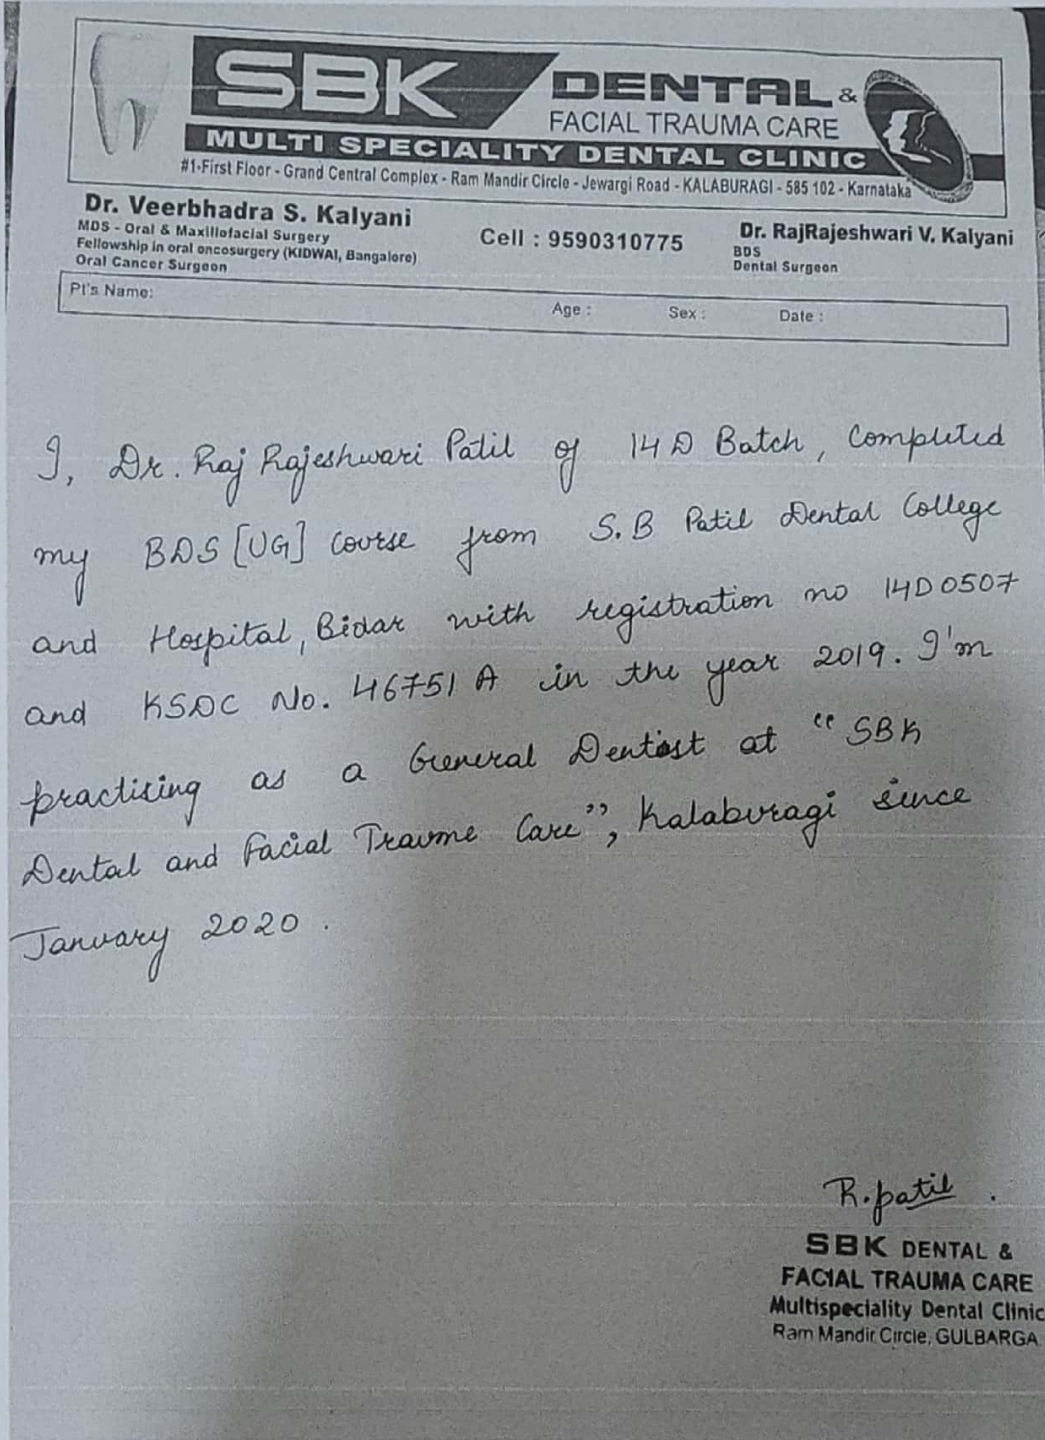 SBK DENTAL &
FACIAL TRAUMA CARE
MULTI SPECIALITY DENTAL CLINIC
#1-First Floor - Grand Central Complex - Ram Mandir Circle - Jewargi Road - KALABURAGI - 585 102 - Karnataka
Dr. Veerbhadra S. Kalyani
MDS - Oral & Maxillofacial Surgery
Fellowship in oral oncosurgery (KIDWAI, Bangalore)
Oral Cancer Surgeon
Cell : 9590310775
Dr. RajRajeshwari V. Kalyani
BDS
Dental Surgeon
Pt's Name: Age : Sex : Date :
I, Dr. Raj Rajeshwari Patil of 14 D Batch, Completed
my BDS [UG] course from S.B Patil Dental College
and Hospital, Bidar with registration no 14D0507
and KSDC No. 46751 A in the year 2019. I'm
practising as a General Dentist at "SBK
Dental and Facial Traume Care", Kalaburagi since
January 2020.
R.patil.
SBK DENTAL &
FACIAL TRAUMA CARE
Multispeciality Dental Clinic
Ram Mandir Circle, GULBARGA